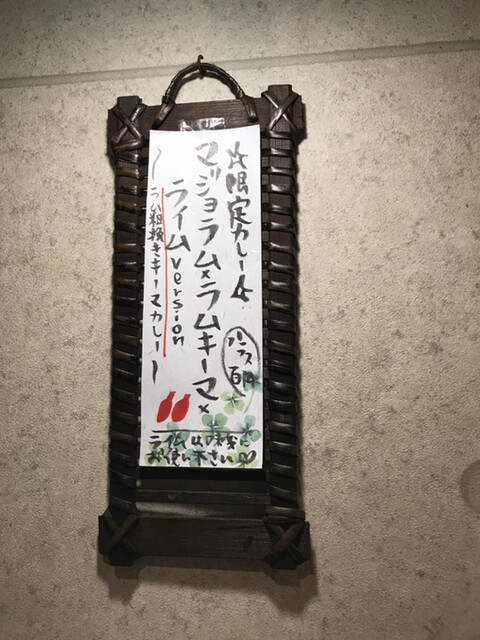 ☆限定カレー☆
マジョラム×ラムキーマ×
ライムversion
〜ラム粗挽きキーマカレー〜
プラス百円
ライムは味変に
お使い下さい♡